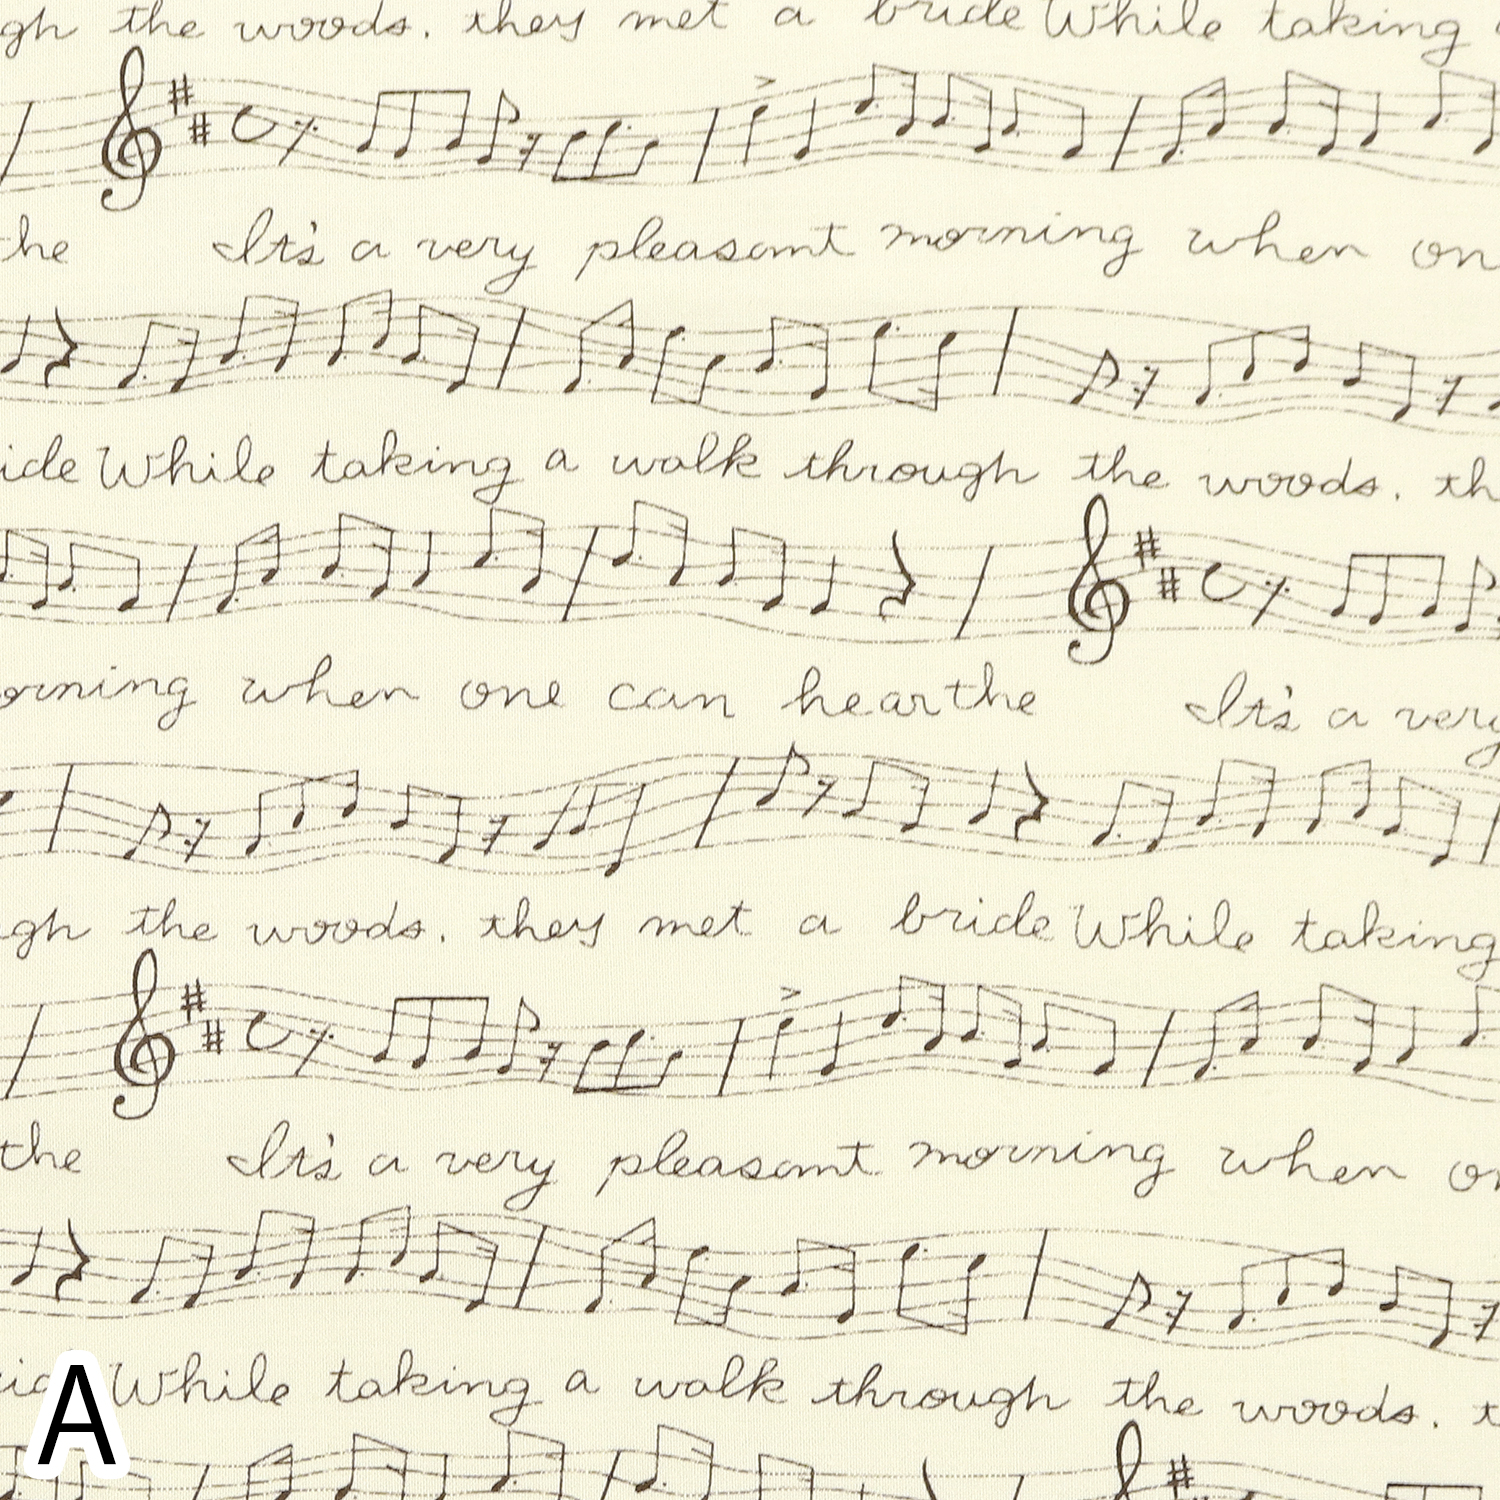 gh the woods. they met a bride While taking
the It's a very pleasant morning when on
ide While taking a walk through the woods. th
orning when one can hearthe It's a very
gh the woods. they met a bride While taking
the It's a very pleasant morning when on
While taking a walk through the woods. t
A